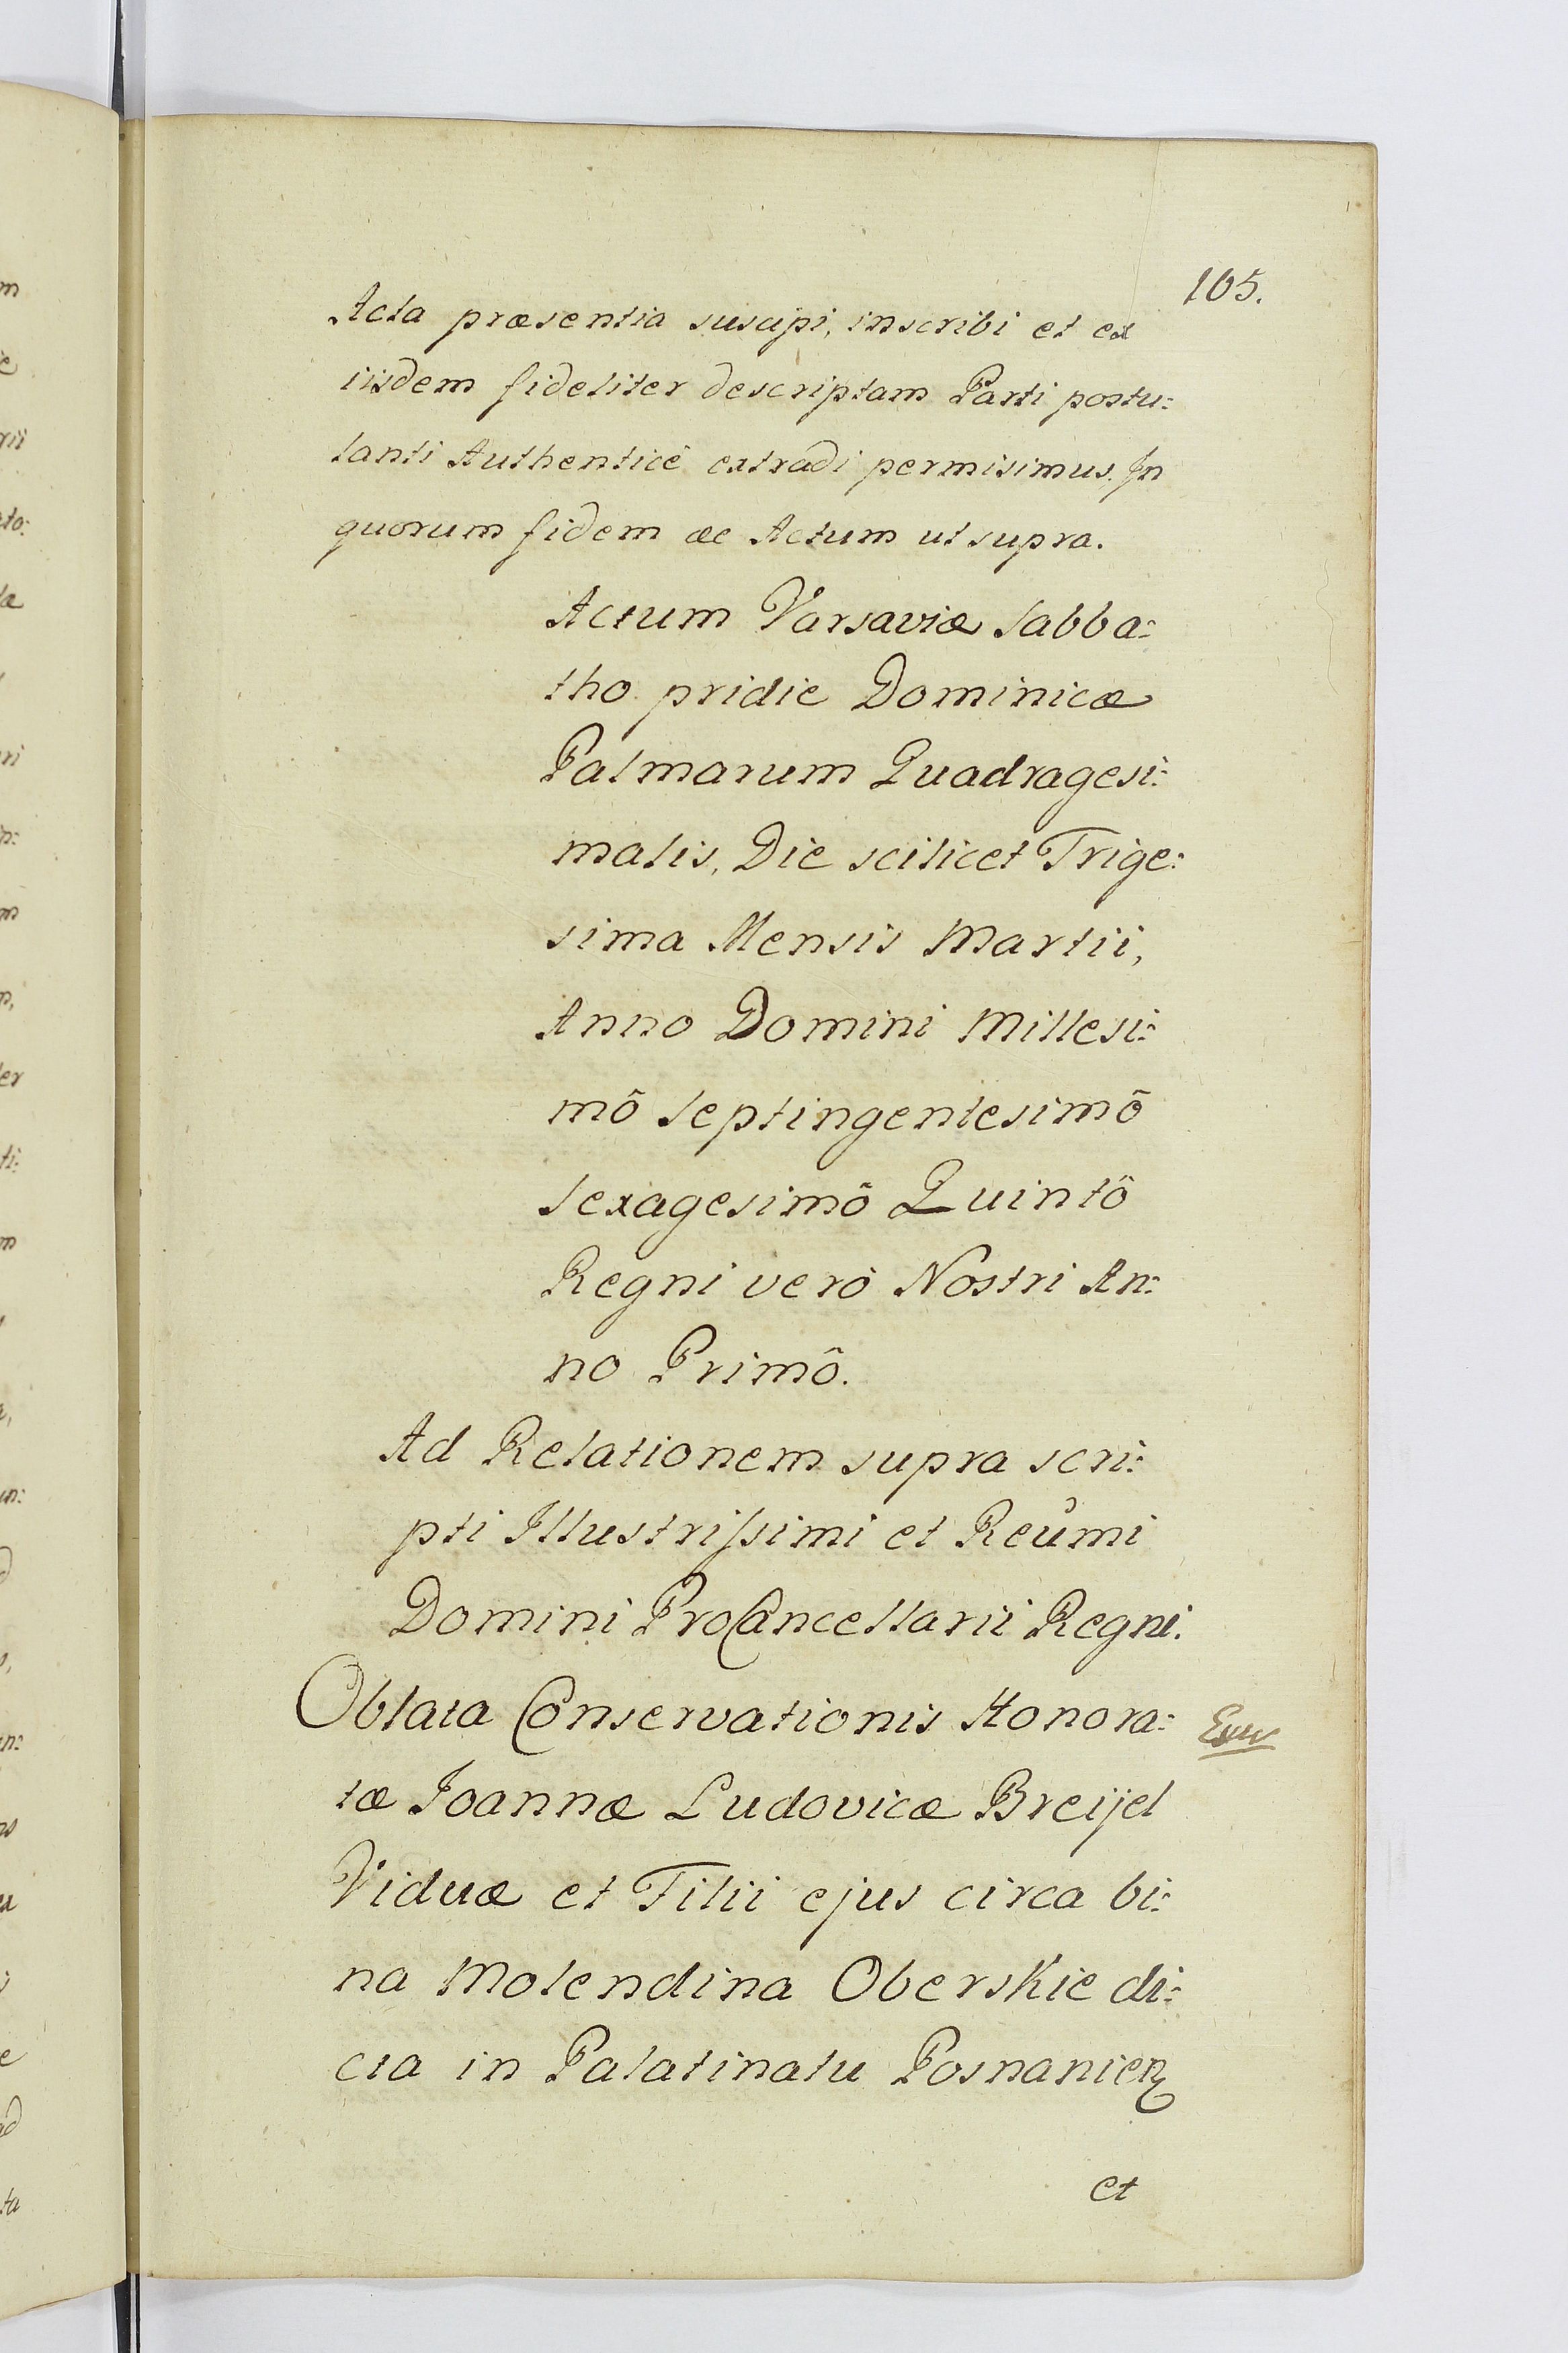 105.
Acta præsentia suscipi, inscribi et ex
iisdem fideliter descriptam Parti postu:
lanti Authenticè extradi permisimus. In
quorum fidem ac Actum ut supra.
Actum Varsaviæ Sabba:
tho pridie Dominicæ
Palmarum Quadragesi:
malis, Die scilicet Trige:
sima Mensis Martii,
Anno Domini Millesi:
mô Septingentesimô
Sexagesimô Quintô
Regni verò Nostri An:
no Primô.
Ad Relationem supra scri:
pti Illustrissimi et Reûmi
Domini ProCancellarii Regni.
Oblata Conservationis Honora:
tæ Joannæ Ludovicæ Breijel
Viduæ et Filii ejus circa bi:
na Molendina Oberskie di:
cta in Palatinatu Posnanien
et